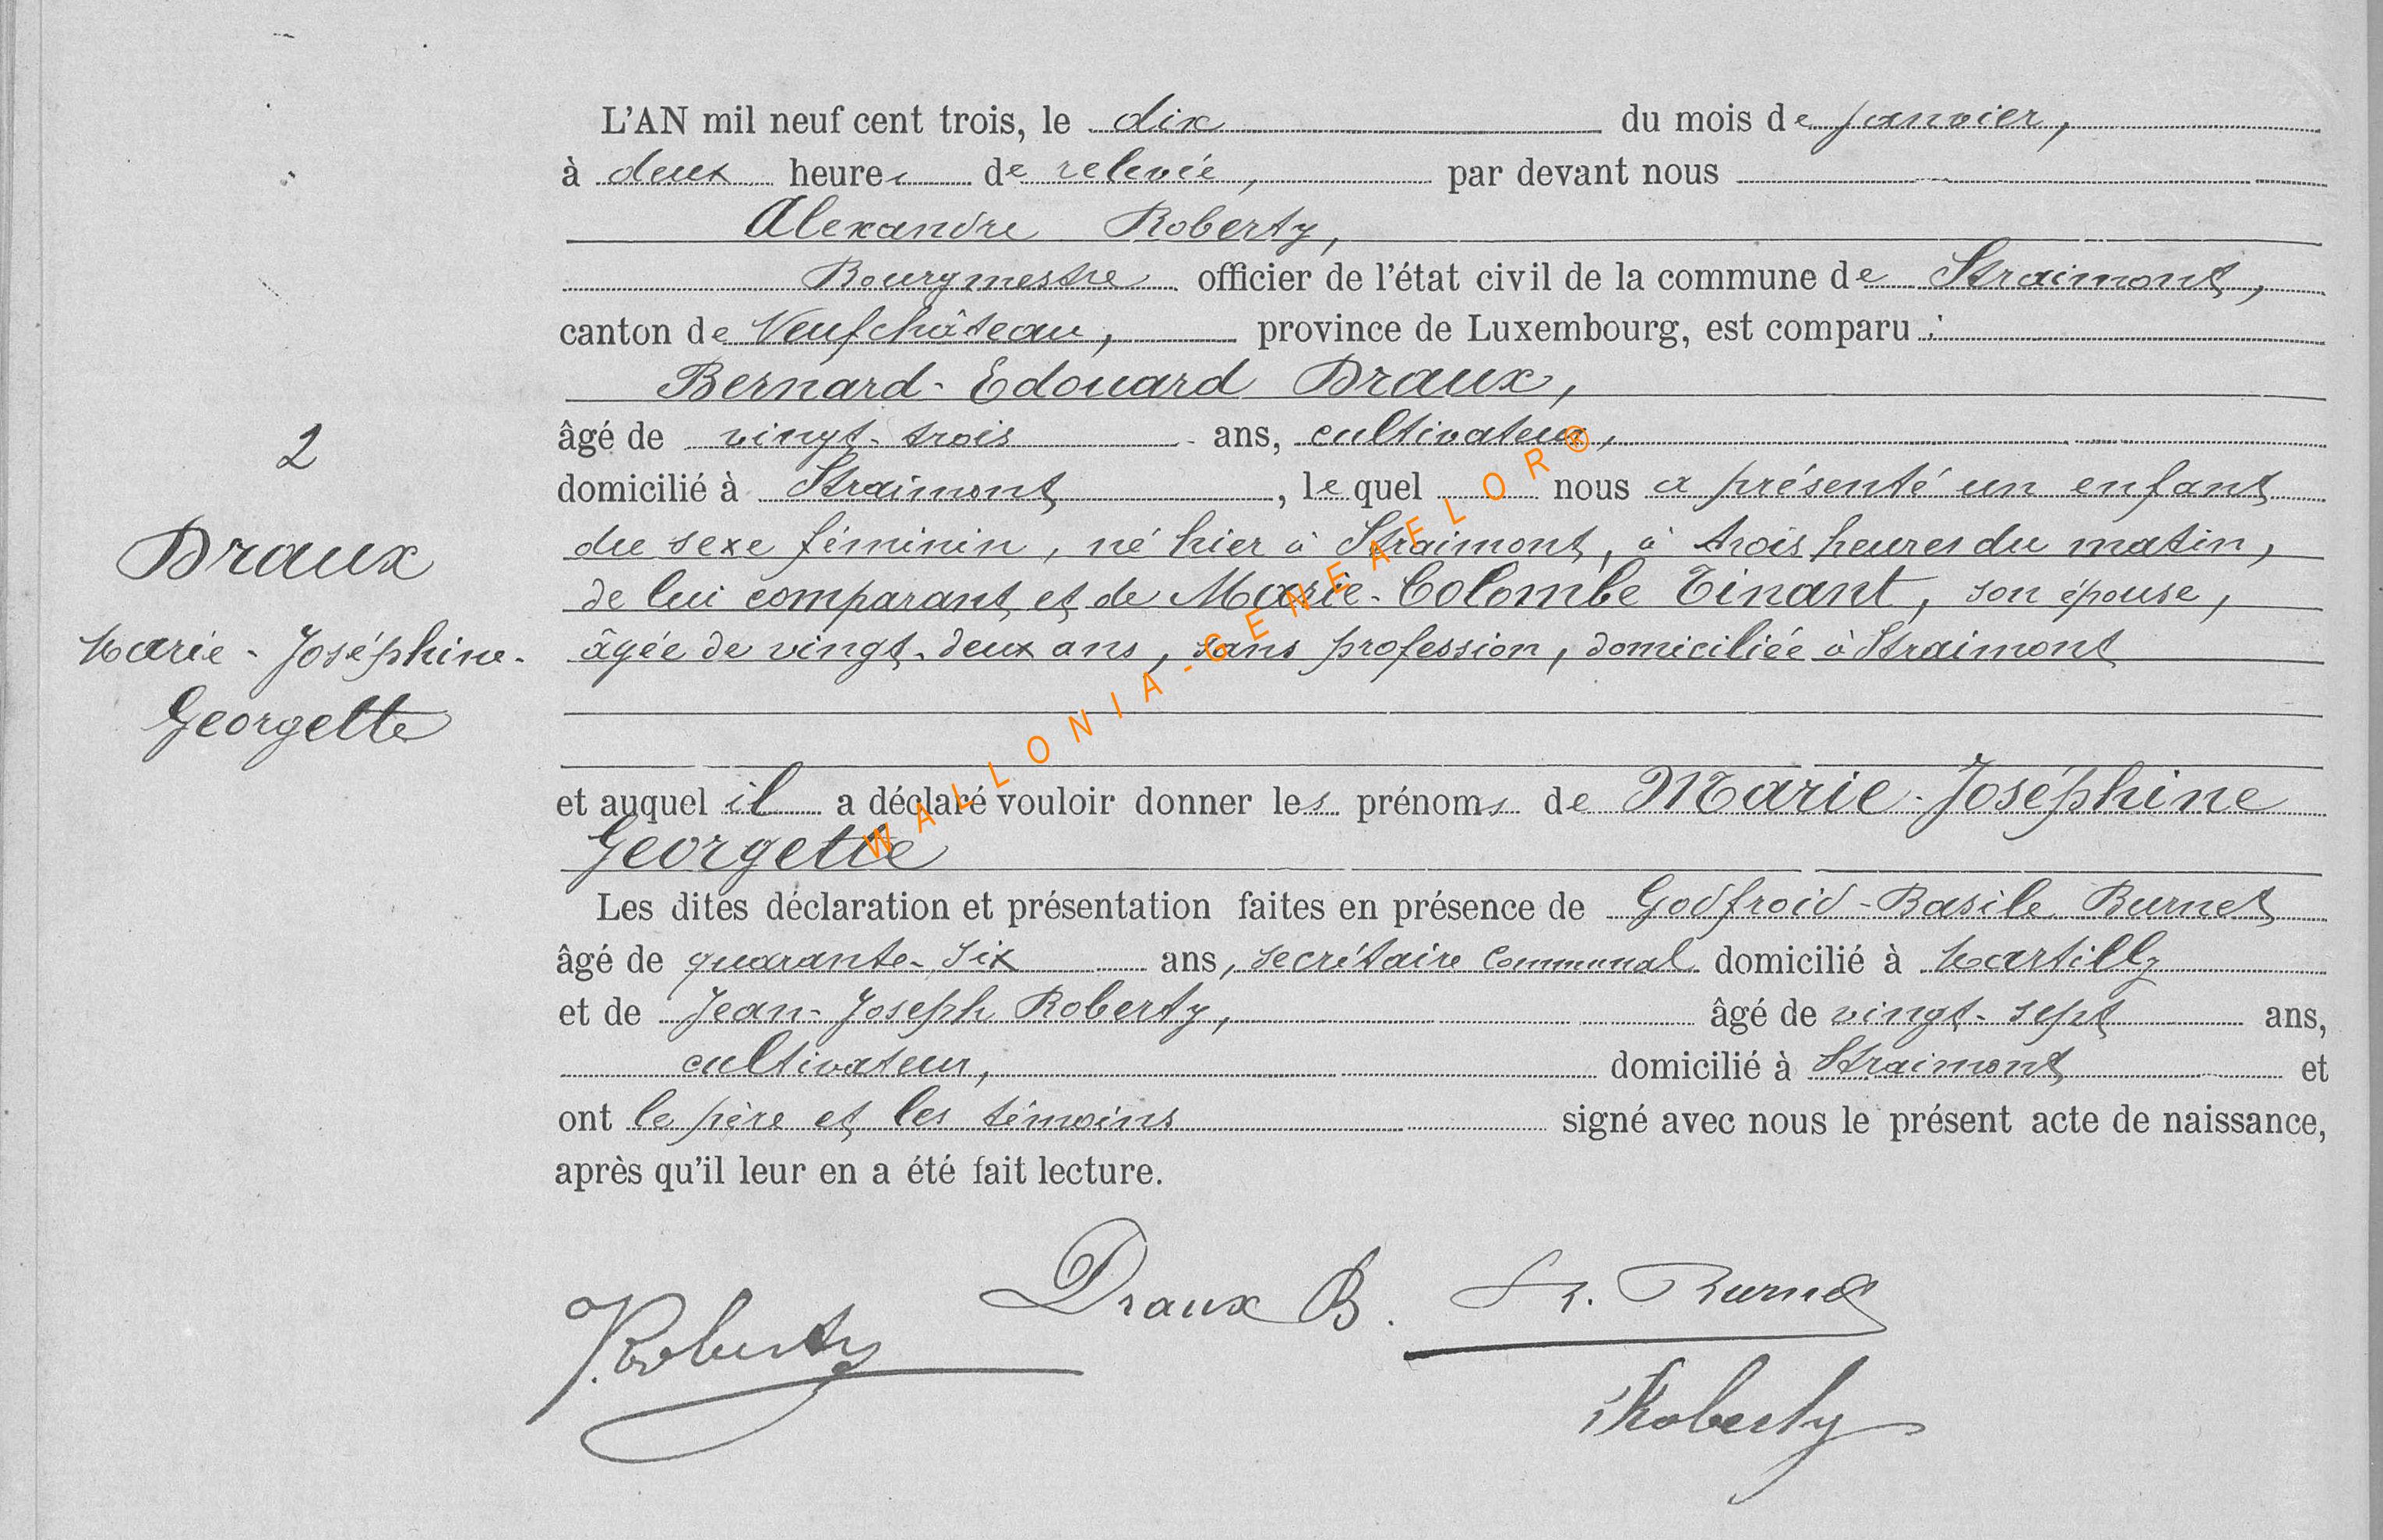 L'AN mil neuf cent trois, le dix du mois de janvier,
à deux heures de relevée, par devant nous
Alexandre Roberty,
Bourgmestre officier de l'état civil de la commune de Straimont,
canton de Neufchâteau, province de Luxembourg, est comparu :
Bernard-Edouard Draux,
âgé de vingt-trois ans, cultivateur,
domicilié à Straimont, le quel nous a présenté un enfant
du sexe féminin, né hier à Straimont, à trois heures du matin,
de lui comparant et de Marie-Colombe Tinant, son épouse,
âgée de vingt-deux ans, sans profession, domiciliée à Straimont
et auquel il a déclaré vouloir donner les prénoms de Marie-Joséphine
Georgette
Les dites déclaration et présentation faites en présence de Godfroid-Basile Burnet
âgé de quarante-six ans, secrétaire communal domicilié à Martilly
et de Jean-Joseph Roberty, âgé de vingt-sept ans,
cultivateur, domicilié à Straimont et
ont le père et les témoins signé avec nous le présent acte de naissance,
après qu'il leur en a été fait lecture.
2
Draux
Marie-Joséphine-
Georgette
WALLONIA-GENEAFLOR®
J. Roberty
Draux B.
Burnet
Roberty